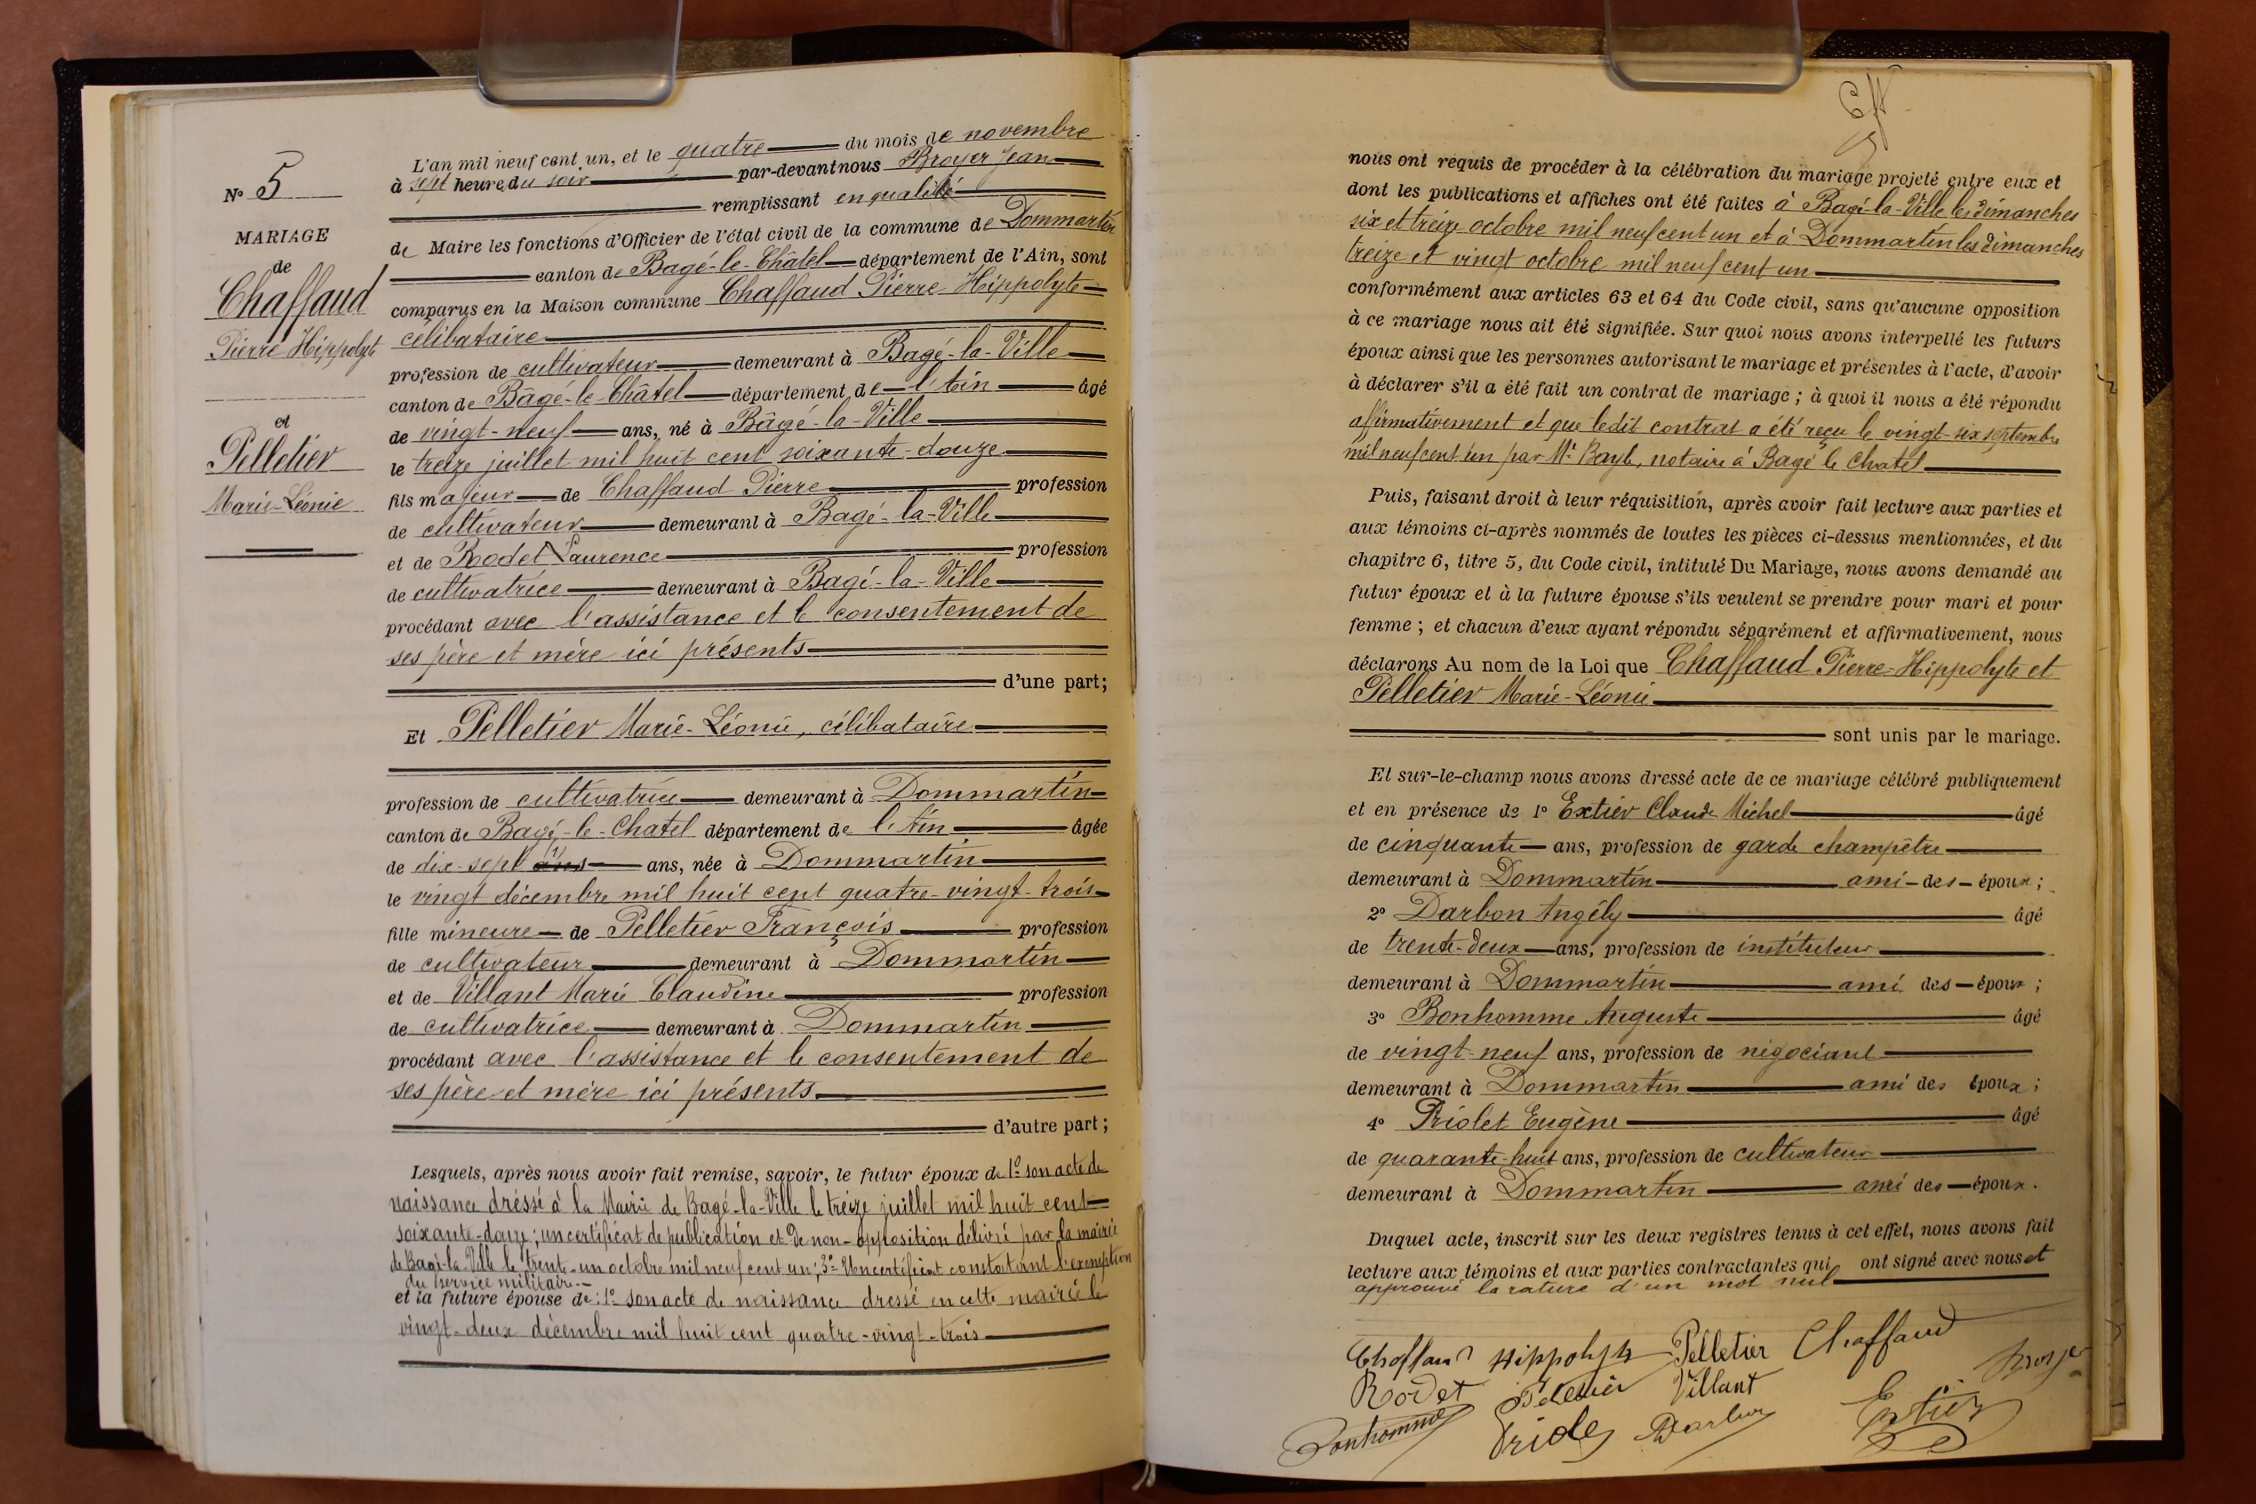 N° 5
MARIAGE
de
Chaffaud
Pierre Hippolyte
et
Pelletier
Marie-Léonie
L'an mil neuf cent un, et le quatre du mois de novembre
à sept heure du soir par-devant nous Broyer Jean
remplissant en qualité
de Maire les fonctions d'Officier de l'état civil de la commune de Dommartin
canton de Bagé-le-Châtel département de l'Ain, sont
comparus en la Maison commune Chaffaud Pierre-Hippolyte
célibataire
profession de cultivateur demeurant à Bagé-la-Ville
canton de Bâgé-le-Châtel département de l'Ain âgé
de vingt-neuf ans, né à Bâgé-la-Ville
le treize juillet mil huit cent soixante-douze
fils majeur de Chaffaud Pierre profession
de cultivateur demeurant à Bagé-la-Ville
et de Rodet Laurence profession
de cultivatrice demeurant à Bagé-la-Ville
procédant avec l'assistance et le consentement de
ses père et mère ici présents
d'une part;
Et Pelletier Marie-Léonie, célibataire
profession de cultivatrice demeurant à Dommartin
canton de Bagé-le-Chatel département de l'Ain âgée
de dix-sept ans, née à Dommartin
le vingt décembre mil huit cent quatre-vingt-trois
fille mineure de Pelletier François profession
de cultivateur demeurant à Dommartin
et de Villant Marie Claudine profession
de cultivatrice demeurant à Dommartin
procédant avec l'assistance et le consentement de
ses père et mère ici présents
d'autre part;
Lesquels, après nous avoir fait remise, savoir, le futur époux de 1° son acte de
naissance dréssé à la Mairie de Bagé-la-Ville le treize juillet mil huit cent
soixante-douze; un certificat de publication et de non-opposition délivré par la mairie
de Bagé-la-Ville le trente-un octobre mil neuf cent un; 3° Un certificat constatant l'exemption
du service militaire.
et la future épouse de: 1° son acte de naissance dressé en cette mairie le
vingt-deux décembre mil huit cent quatre-vingt-trois
nous ont requis de procéder à la célébration du mariage projeté entre eux et
dont les publications et affiches ont été faites à Bagé-la-Ville les dimanches
six et treize octobre mil neuf cent un et à Dommartin les dimanches
treize et vingt octobre mil neuf cent un
conformément aux articles 63 et 64 du Code civil, sans qu'aucune opposition
à ce mariage nous ait été signifiée. Sur quoi nous avons interpellé les futurs
époux ainsi que les personnes autorisant le mariage et présentes à l'acte, d'avoir
à déclarer s'il a été fait un contrat de mariage; à quoi il nous a été répondu
affirmativement et que ledit contrat a été reçu le vingt-six septembre
mil neuf cent un par Me notaire à Bagé le Chatel
Puis, faisant droit à leur réquisition, après avoir fait lecture aux parties et
aux témoins ci-après nommés de toutes les pièces ci-dessus mentionnées, et du
chapitre 6, titre 5, du Code civil, intitulé Du Mariage, nous avons demandé au
futur époux et à la future épouse s'ils veulent se prendre pour mari et pour
femme; et chacun d'eux ayant répondu séparément et affirmativement, nous
déclarons Au nom de la Loi que Chaffaud Pierre-Hippolyte et
Pelletier Marie-Léonie
sont unis par le mariage.
Et sur-le-champ nous avons dressé acte de ce mariage célébré publiquement
et en présence de 1° Extier Claude Michel âgé
de cinquante ans, profession de garde champêtre
demeurant à Dommartin ami des époux;
2° Darbon Angély âgé
de trente-deux ans, profession de instituteur
demeurant à Dommartin ami des époux;
3° Bonhomme Auguste âgé
de vingt-neuf ans, profession de négociant
demeurant à Dommartin ami des époux;
4° Priolet Eugène âgé
de quarante-huit ans, profession de cultivateur
demeurant à Dommartin ami des époux.
Duquel acte, inscrit sur les deux registres tenus à cet effet, nous avons fait
lecture aux témoins et aux parties contractantes qui ont signé avec nous et
approuvé la rature d'un mot nul
Chaffaud Hippolyte Pelletier Chaffaud
Rodet Pelletier Villant Broyer
Bonhomme Darbon Extier